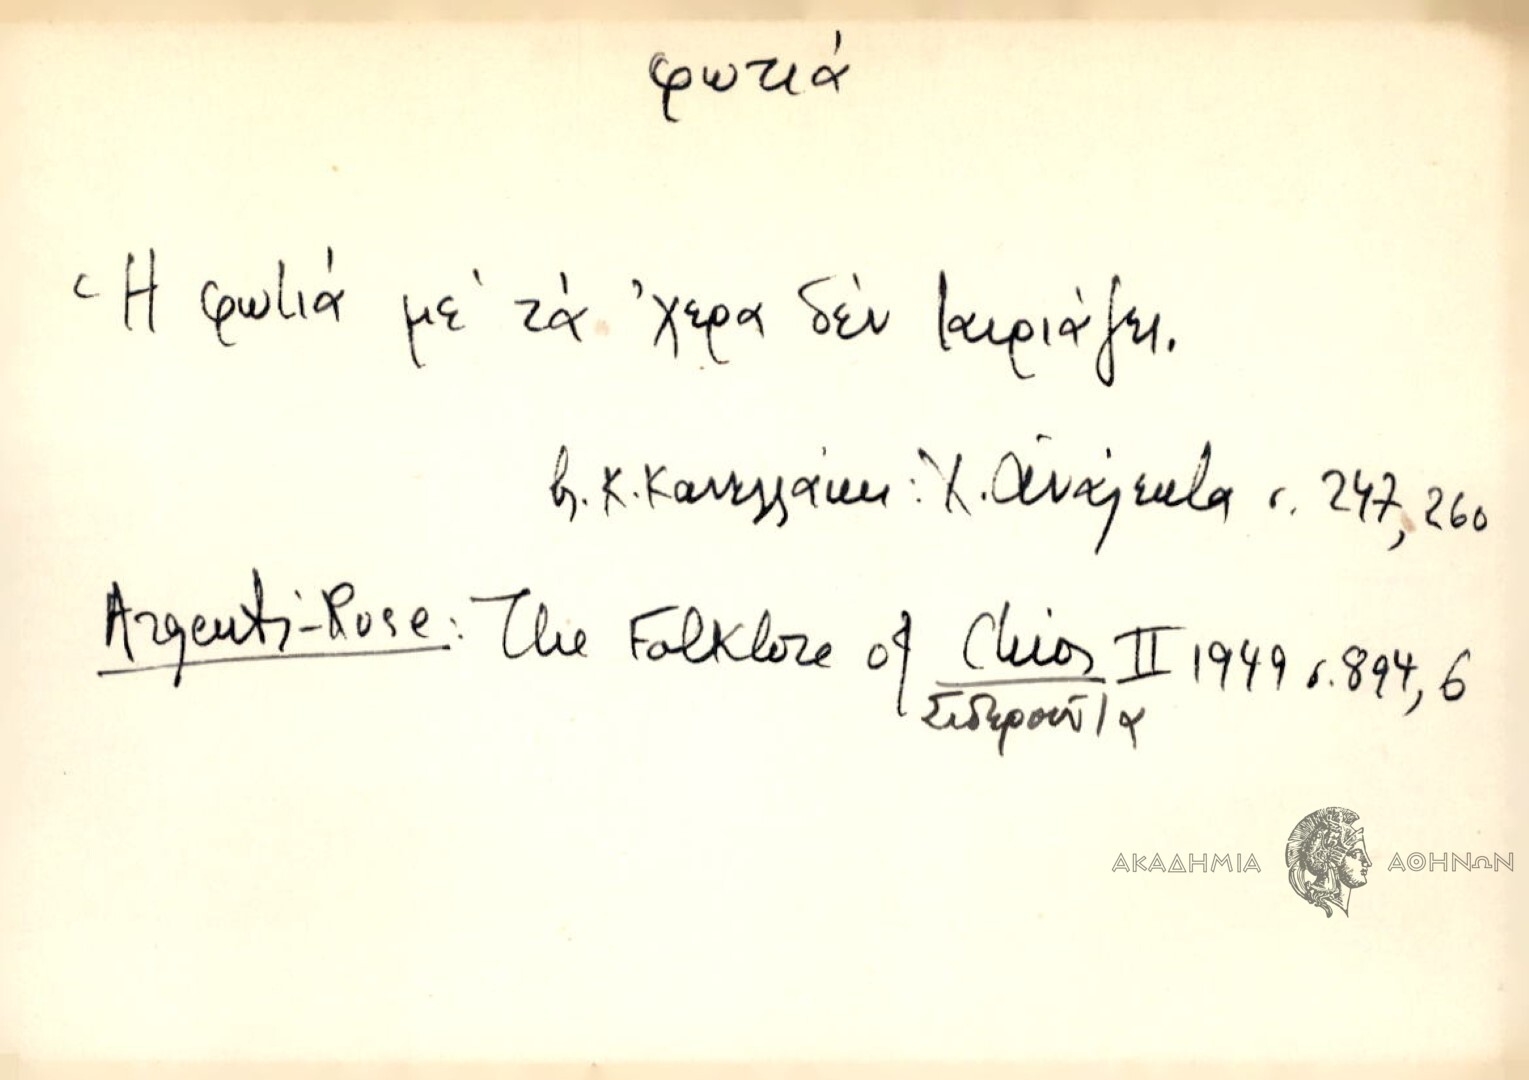 φωτιά
Ἡ φωτιά μέ τά 'χερα δέν ταιριάζει.
βλ. Κ. Κανελλάκη: Χ. Ἀνάλεκτα σ. 247, 260
Argenti-Rose: The Folklore of Chios II 1949 σ. 894, 6
Σιδεροῦντα
ΑΚΑΔΗΜΙΑ ΑΘΗΝΩΝ